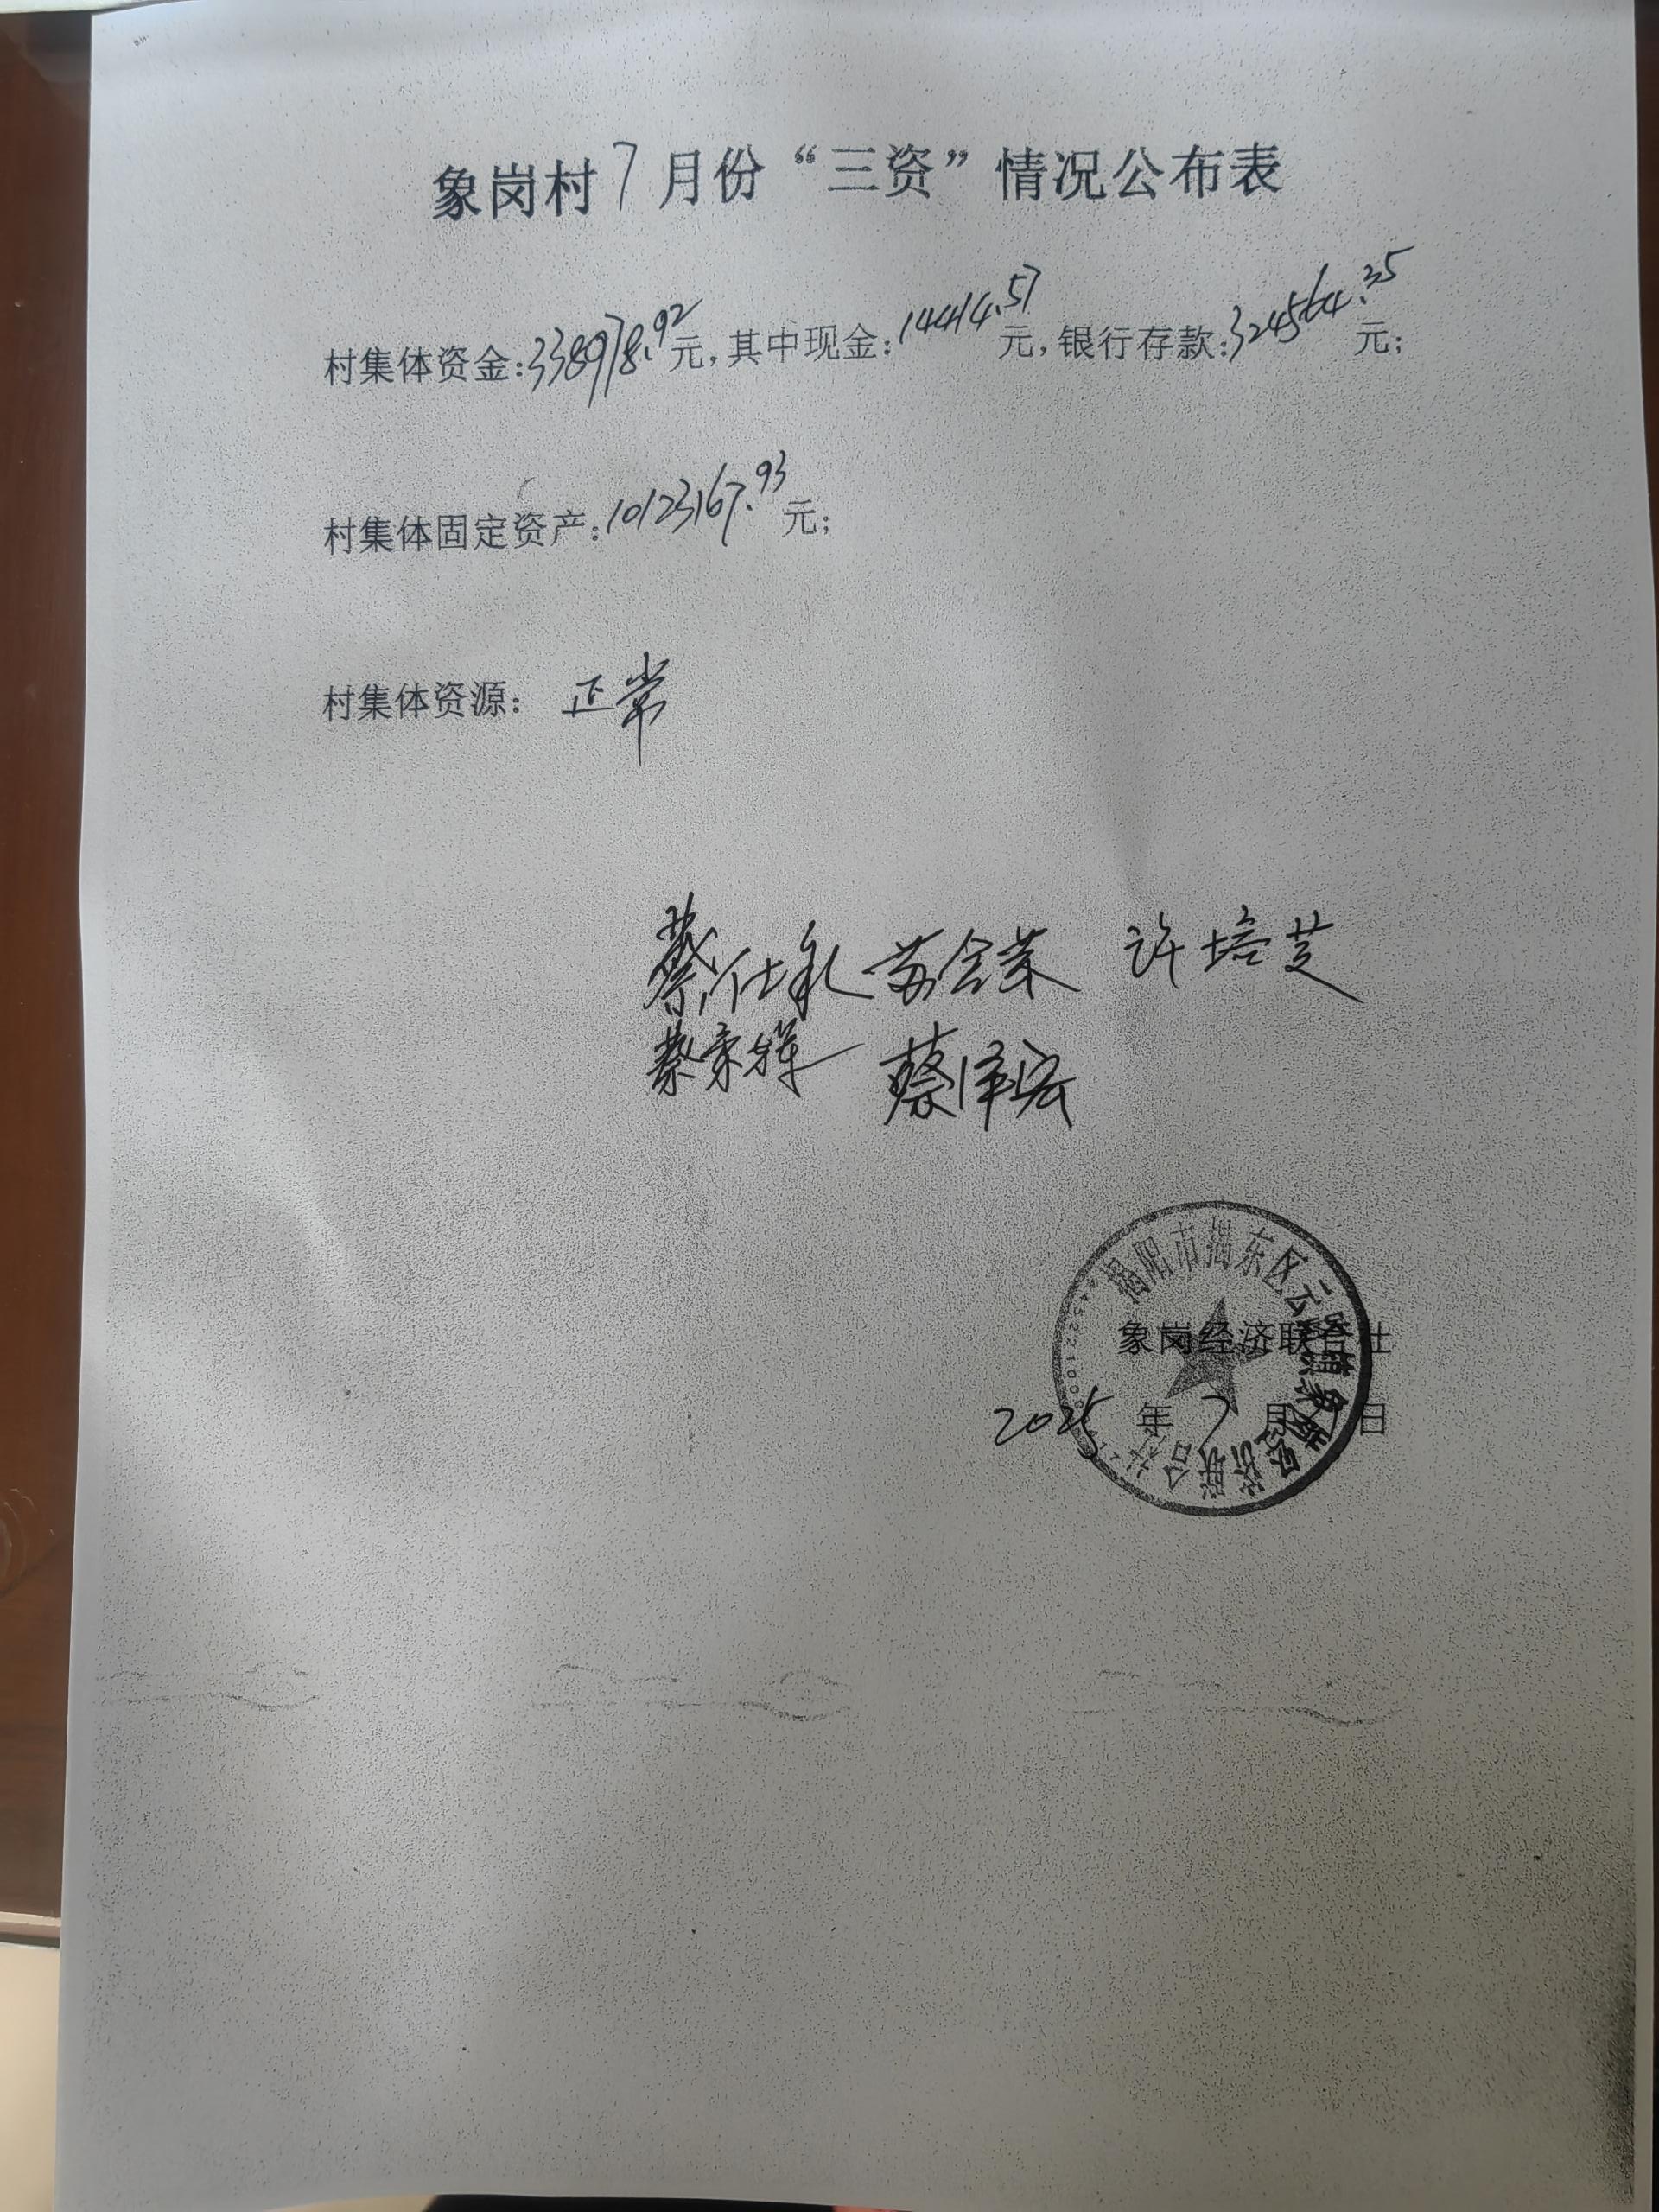 象岗村7月份“三资”情况公布表
村集体资金:338978.92元,其中现金:14414.57元,银行存款:324564.35元;
村集体固定资产:10123167.93元;
村集体资源: 正常
蔡仕 苏 许培芝
蔡 蔡泽宏
揭阳市揭东区云路镇象岗经济联合社
象岗经济联合社
2025年7月 日